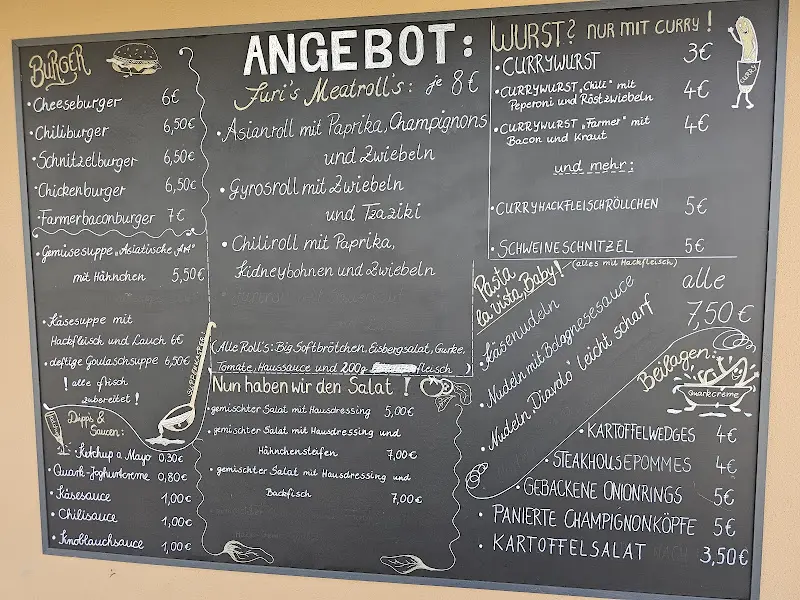 BURGER
• Cheeseburger 6€
• Chiliburger 6,50€
• Schnitzelburger 6,50€
• Chickenburger 6,50€
• Farmerbaconburger 7€
• Gemüsesuppe „Asiatische Art"
mit Hähnchen 5,50€
• Käsesuppe mit
Hackfleisch und Lauch 6€
• deftige Goulaschsuppe 6,50€
! alle frisch
zubereitet !
SUPPENKASPER
Dipp's &
Saucen:
Ketchup o Mayo 0,30€
• Quark-Joghurtcreme 0,80€
• Käsesauce 1,00€
• Chilisauce 1,00€
• Knoblauchsauce 1,00€
ANGEBOT:
Juri's Meatroll's: je 8€
• Asianroll mit Paprika, Champignons
und Zwiebeln
• Gyrosroll mit Zwiebeln
und Tzaziki
• Chiliroll mit Paprika,
Kidneybohnen und Zwiebeln
(Alle Roll's: Big Softbrötchen, Eisbergsalat, Gurke,
Tomate, Haussauce und 200g fleisch)
Nun haben wir den Salat !
• gemischter Salat mit Hausdressing 5,00€
• gemischter Salat mit Hausdressing und
Hähnchensteifen 7,00€
• gemischter Salat mit Hausdressing und
Backfisch 7,00€
WURST? NUR MIT CURRY!
• CURRYWURST 3€
• CURRYWURST „Chili" mit 4€
Peperoni und Röstzwiebeln
• CURRYWURST „Farmer" mit 4€
Bacon und Kraut
CURRY
und mehr:
• CURRYHACKFLEISCHRÖLLCHEN 5€
• SCHWEINESCHNITZEL 5€
Pasta
la vista, Baby! (alles mit Hackfleisch)
alle
7,50€
• Käsenudeln
• Nudeln mit Bolognesesauce
• Nudeln „Diavolo" leicht scharf
Beilagen:
Quarkcreme
• KARTOFFELWEDGES 4€
• STEAKHOUSEPOMMES 4€
• GEBACKENE ONIONRINGS 5€
• PANIERTE CHAMPIGNONKÖPFE 5€
• KARTOFFELSALAT 3,50€